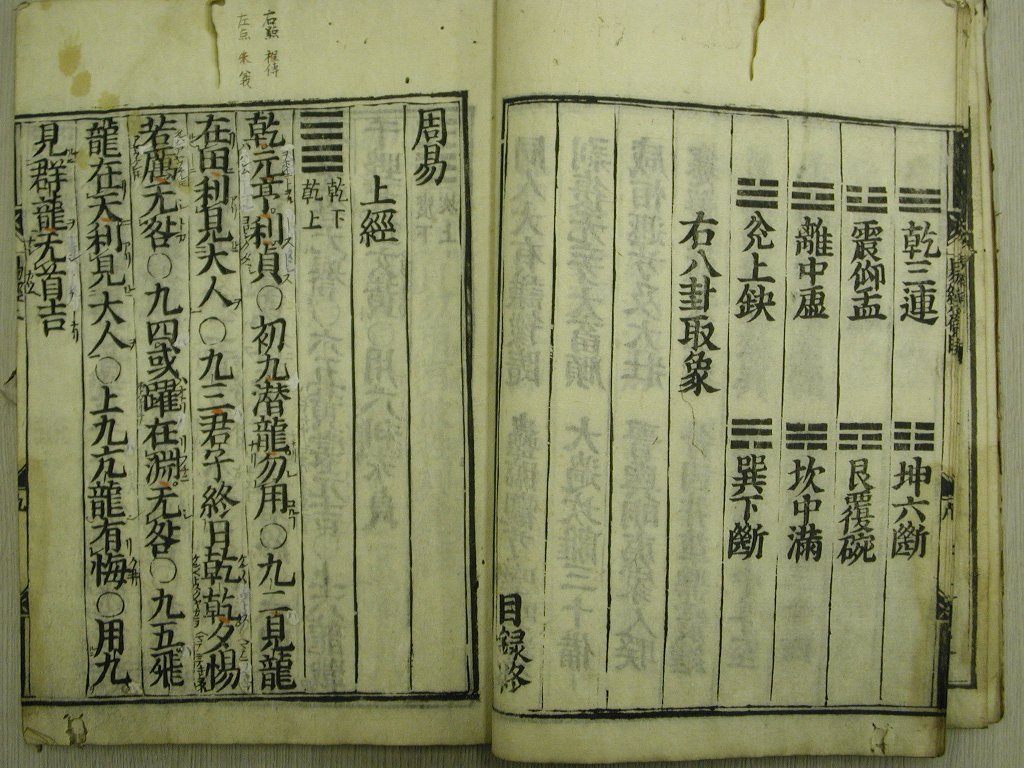 乾三連 坤六斷
震仰盂 艮覆碗
離中虛 坎中滿
兊上缺 巽下斷
右八卦取象
目録終
周易
上經
乾下
乾上
乾元亨利貞○初九潛龍勿用○九二見龍
在田利見大人○九三君子終日乾乾夕惕
若厲无咎○九四或躍在淵无咎○九五飛
龍在天利見大人○上九亢龍有悔○用九
見群龍无首吉
右點 相傳
左点 朱